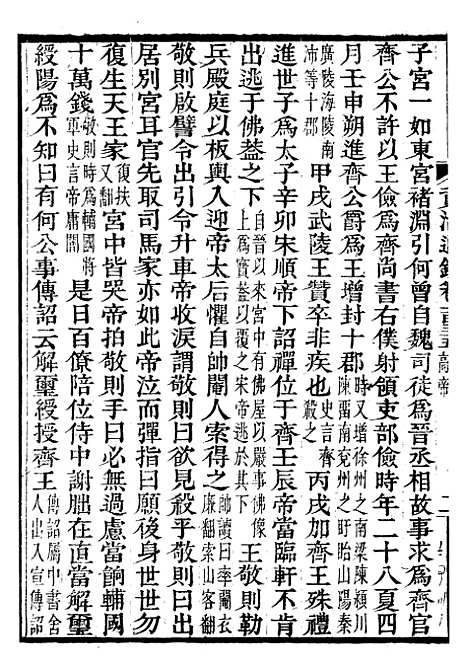 子宮一如東宮褚淵引何曾自魏司徒為晉丞相故事求為齊官
齊公不許以王儉為齊尚書右僕射領吏部儉時年二十八夏四
月壬申朔進齊公爵為王增封十郡時又增徐州之南梁陳潁川陳畱南兗州之盱眙山陽秦
廣陵海陵南沛等十郡甲戌武陵王贊卒非疾也史言齊殺之丙戌加齊王殊禮
進世子為太子辛卯宋順帝下詔禪位于齊壬辰帝當臨軒不肯
出逃于佛葢之下自晉以來宮中有佛屋以嚴事佛像上為寶葢以覆之宋帝逃其下王敬則勒
兵殿庭以板輿入迎帝太后懼自帥閹人索得之帥讀曰率閹衣廉翻索山客翻
敬則啟譬令出引令升車帝收淚謂敬則曰欲見殺乎敬則曰出
居別宮耳官先取司馬家亦如此帝泣而彈指曰願後身世世勿
復生天王家復扶又翻宮中皆哭帝拍敬則手曰必無過慮當餉輔國
十萬錢敬則時為輔國將軍史言帝庸闇是日百僚陪位侍中謝朏在直當解璽
綬陽為不知曰有何公事傳詔云解璽綬授齊王傳詔屬中書舍人出入宣傳詔
資治通鑑卷一百三十五